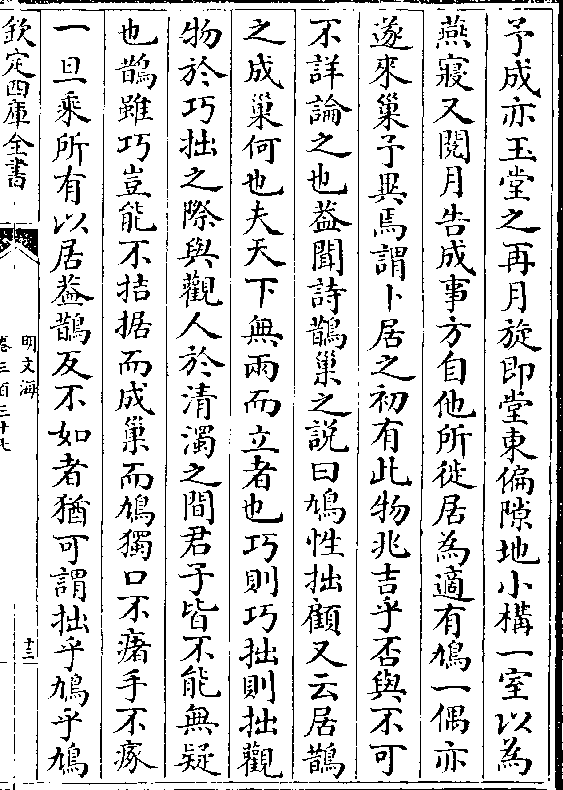 予成亦玉堂之再月旋即堂東偏隙地小構一室以為
燕寢又閱月告成事方自他所徙居為適有鳩一偶亦
遂來巢予異焉謂卜居之初有此物兆吉乎否與不可
不詳論之也葢聞詩鵲巢之說曰鳩性拙顧又云居鵲
之成巢何也夫天下無兩而立者也巧則巧拙則拙觀
物於巧拙之際與觀人於清濁之間君子皆不能無疑
也鵲雖巧豈能不拮据而成巢而鳩獨口不瘏手不瘃
一旦乘所有以居葢鵲反不如者猶可謂拙乎鳩乎鳩
欽定四庫全書
明文海
卷三百三十七
十三